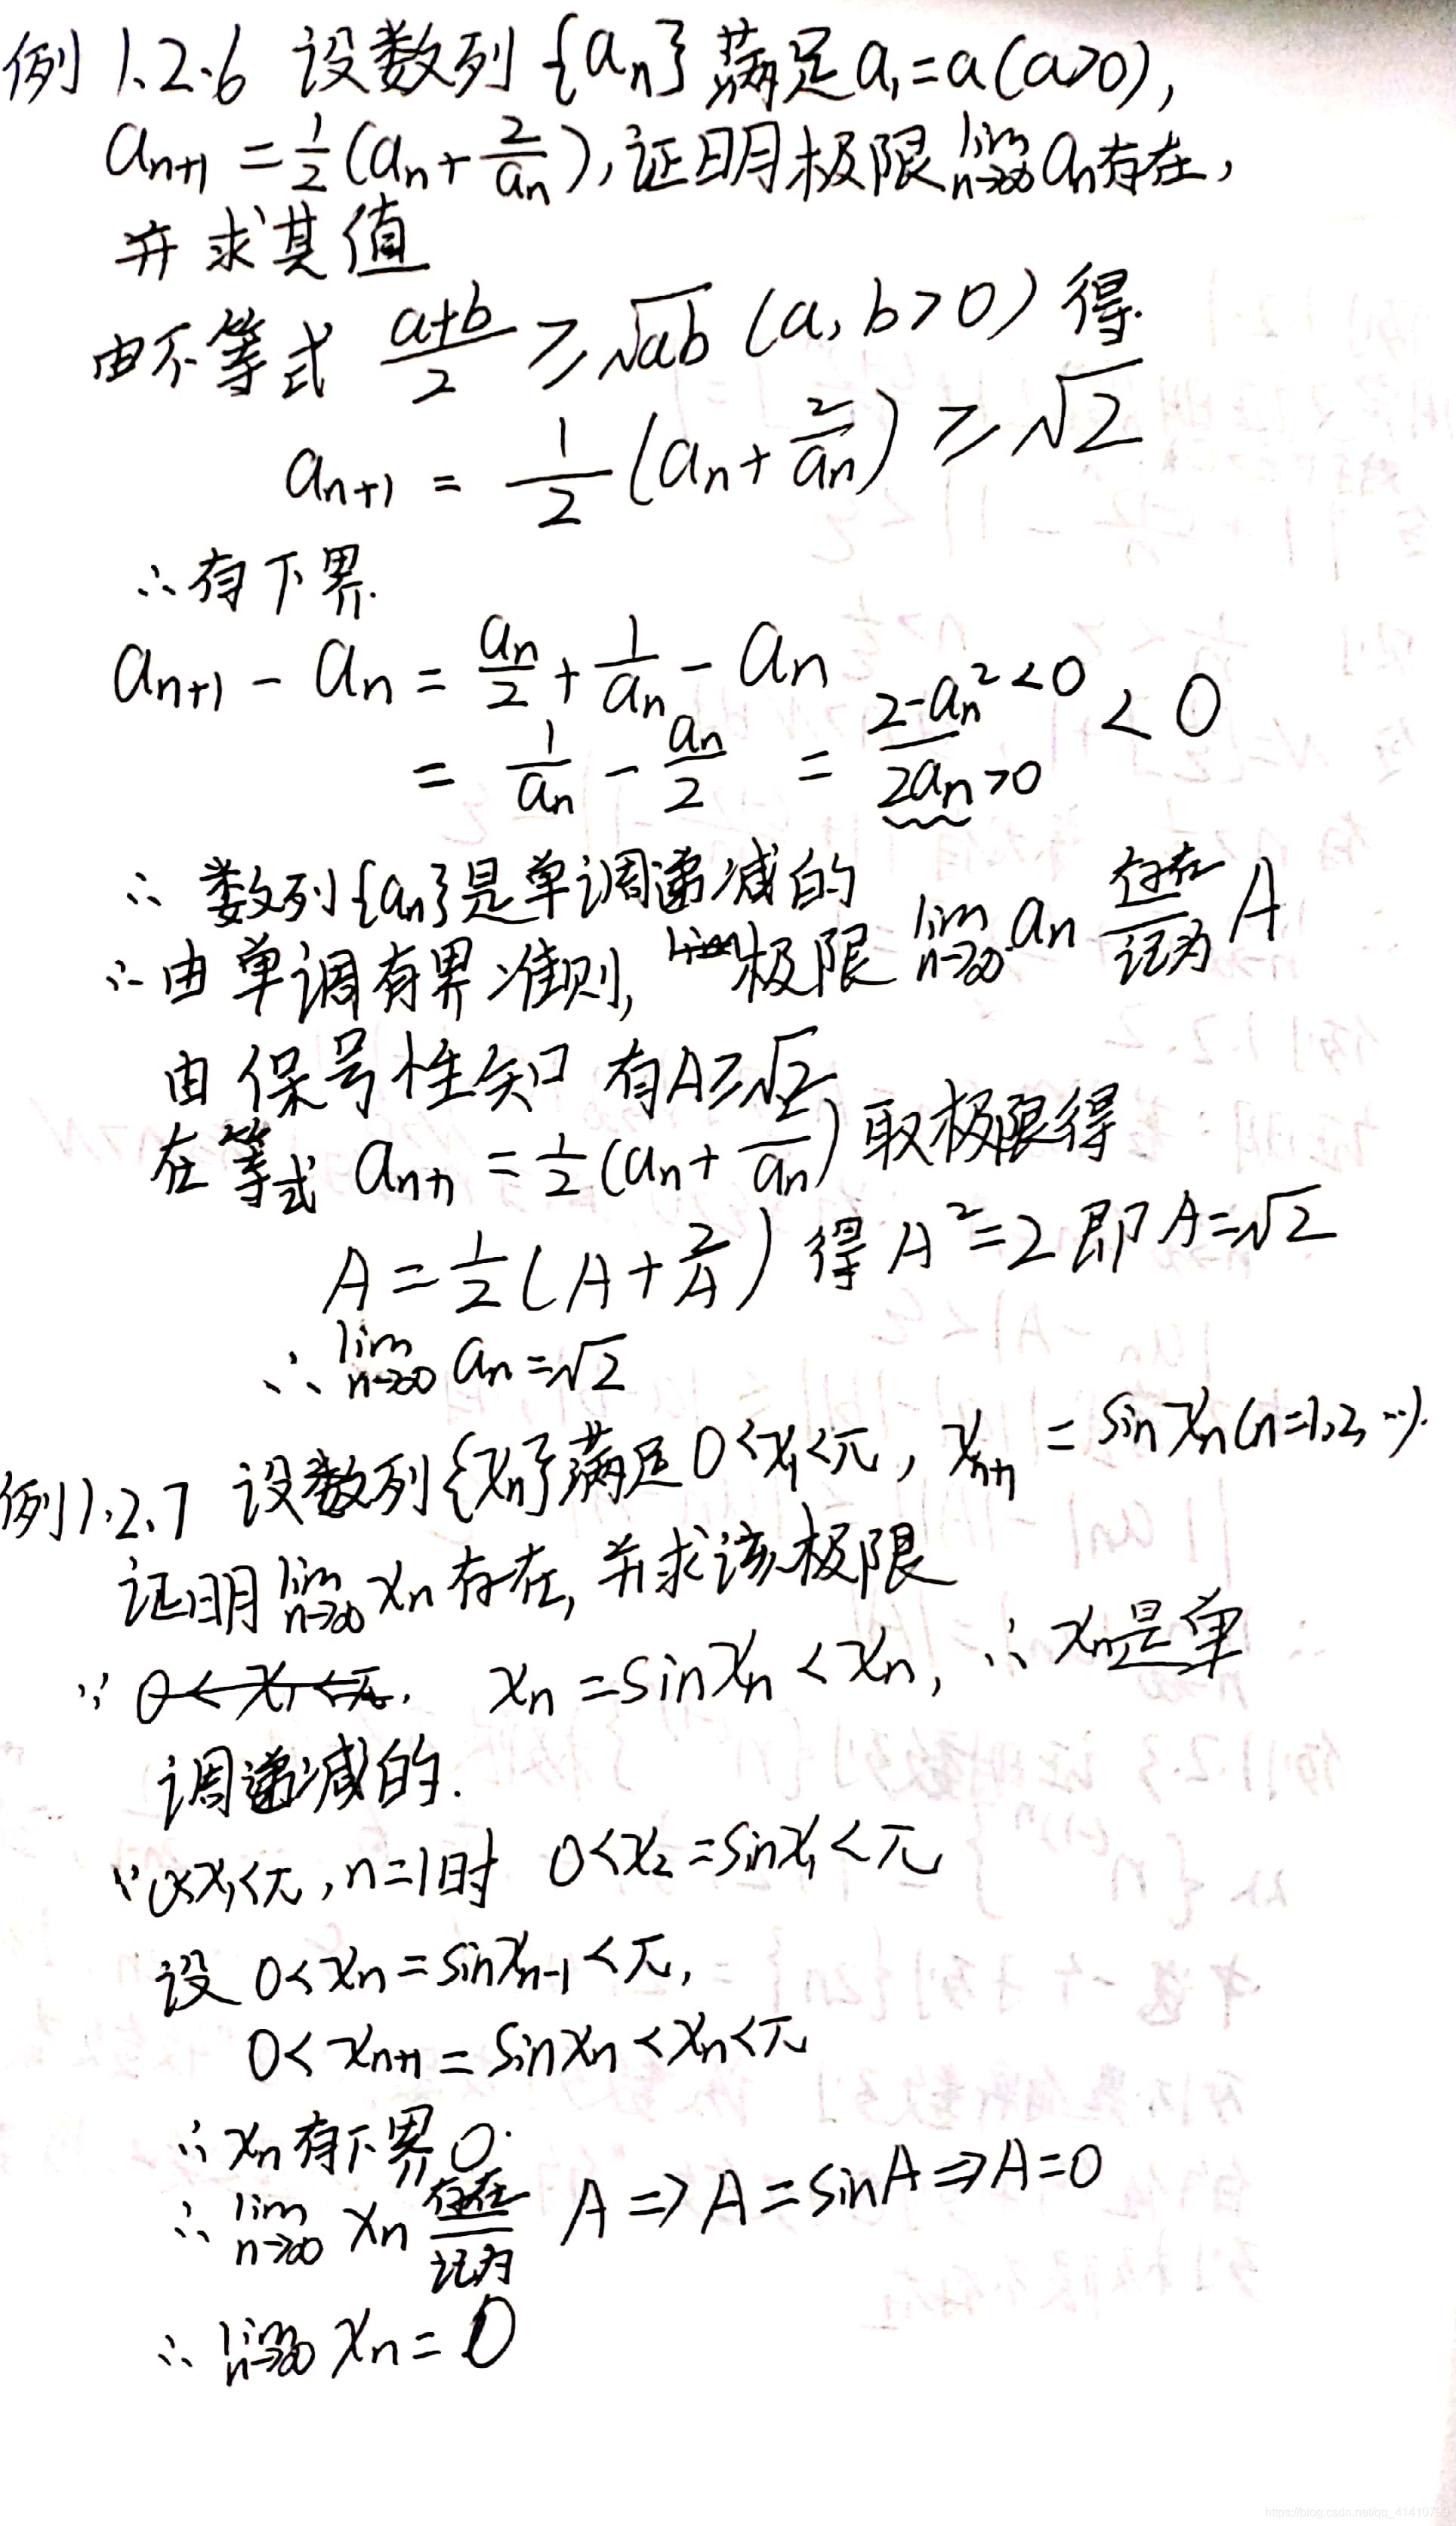 例1.2.6 设数列{aₙ}满足a₁=a(a>0),
aₙ₊₁=1/2(aₙ+2/aₙ),证明极限lim n→∞ aₙ存在,
并求其值
由不等式 (a+b)/2 ≥ √ab (a,b>0) 得.
aₙ₊₁ = 1/2(aₙ+2/aₙ) ≥ √2
∴有下界.
aₙ₊₁ - aₙ = aₙ/2 + 1/aₙ - aₙ
= 1/aₙ - aₙ/2 = (2-aₙ²<0)/(2aₙ>0) < 0
∴ 数列{aₙ}是单调递减的
∴由单调有界准则, 极限 lim n→∞ aₙ 存在 记为 A
由保号性知 有A≥√2
在等式 aₙ₊₁ = 1/2(aₙ+2/aₙ) 取极限得
A = 1/2(A+2/A) 得 A²=2 即 A=√2
∴ lim n→∞ aₙ=√2
例1.2.7 设数列{xₙ}满足0<x₁<π, xₙ₊₁ = sinxₙ(n=1,2,…).
证明lim n→∞ xₙ存在,并求该极限
∵ 0<x₁<π. xₙ=sinxₙ<xₙ, ∴ xₙ是单
调递减的.
∵0<x₁<π,n=1时 0<x₂=sinx₁<π
设 0<xₙ=sinxₙ₋₁<π,
0<xₙ₊₁=sinxₙ<xₙ<π
∴xₙ有下界0.
∴ lim n→∞ xₙ 存在 记为 A ⇒ A=sinA⇒A=0
∴ lim n→∞ xₙ=0